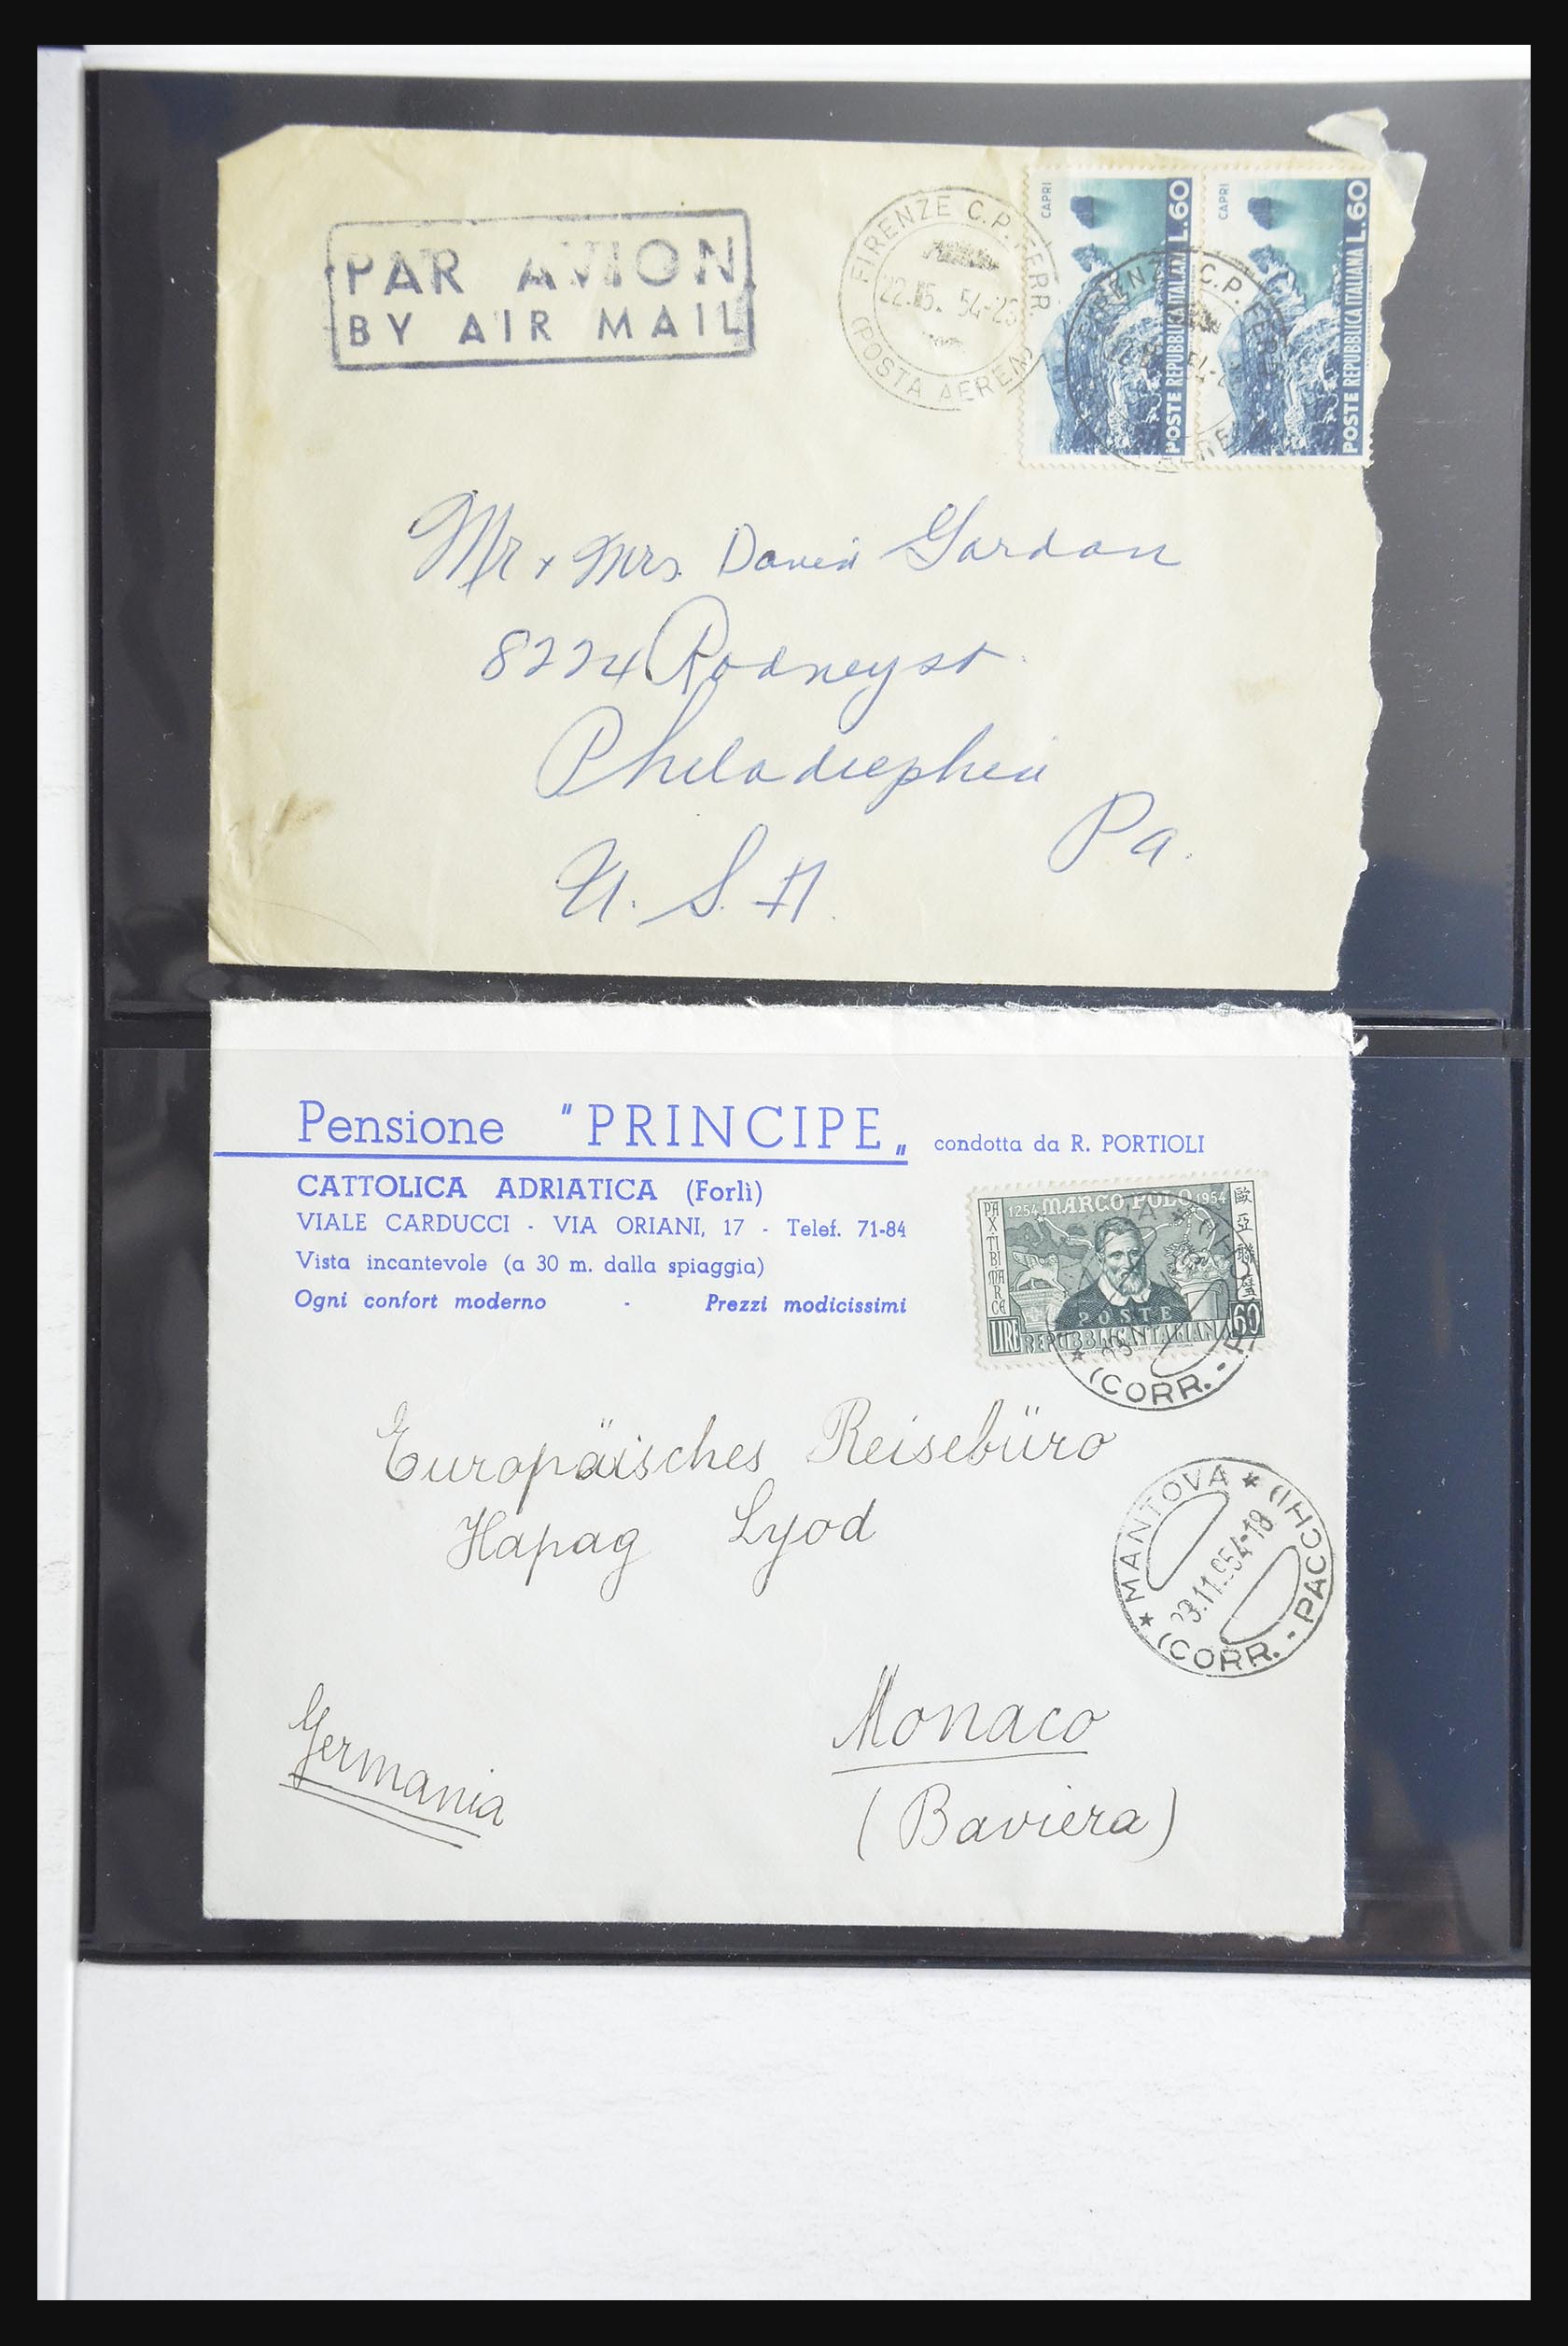 PAR AVION
BY AIR MAIL
FIRENZE C.P. FERR.
22. 5. 54-23
(POSTA AEREA)
CAPRI
POSTE REPUBBLICA ITALIANA L.60
CAPRI
POSTE REPUBBLICA ITALIANA L.60
Mr + Mrs. David Gordon
8224 Rodney st.
Philadelphia
Pa.
U.S.A.
Pensione "PRINCIPE„ condotta da R. PORTIOLI
CATTOLICA ADRIATICA (Forlì)
VIALE CARDUCCI - VIA ORIANI, 17 - Telef. 71-84
Vista incantevole (a 30 m. dalla spiaggia)
Ogni confort moderno - Prezzi modicissimi
1254 MARCO POLO 1954
PAX TIBI MARCE
歐亞聯璧
POSTE
LIRE REPUBBLICA ITALIANA 60
(CORR. - P
Europäisches Reisebüro
Hapag Lyod
* MANTOVA *
3.11.954-18
(CORR. - PACCHI)
Monaco
(Baviera)
Germania